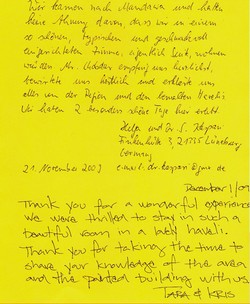 wir kamen nach Mandawa und hatten
keine Ahnung davon, dass wir in einem
so schönen, typischen und geschmackvoll
eingerichteten Zimmer, eigentlich Suite, wohnen
würden. Mr. empfing uns herzlich,
bewirtete uns köstlich und erklärte uns
alles von der Region und den bemalten Havelis
Wir haben 2 besonders schöne Tage hier erlebt.
und Dr. S.
3, 21335 Lüneburg
Germany
21. November 2009 e-mail:
December 1/09
Thank you for a wonderful experience
We were thrilled to stay in such a
beautiful room in a lovely haveli.
Thank you for taking the time to
share your knowledge of the area
and the painted building with us.
TARA & KRIS